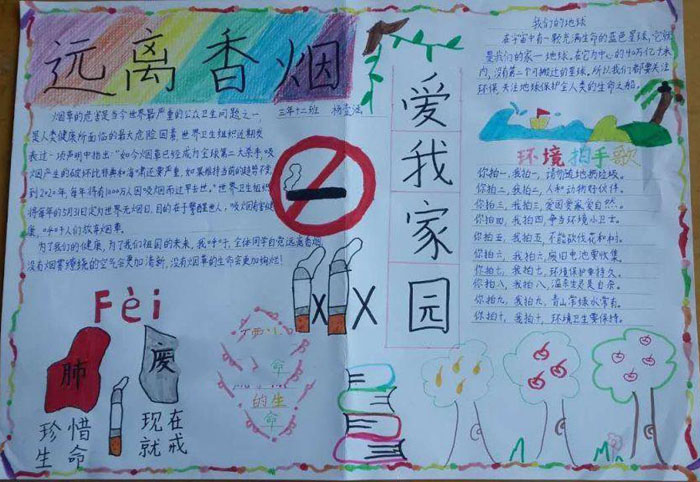 远离香烟
三年十二班
烟草的危害是当今世界最严重的公众卫生问题之一
是人类健康所面临的最大危险因素。世界卫生组织近期发
表过一项声明中指出:"如今烟草已经成为全球第二大杀手,吸
烟产生的破坏比非典和海啸还要严重,如果维持当前的趋势不变,
到2020年,每年将有1000万人因吸烟而过早去世。"世界卫生组织
将每年的5月31日定为世界无烟日,目的在于警醒世人,吸烟有害健
康,呼吁人们放弃烟草。
为了我们的健康,为了我们祖国的未来,我呼吁,全体同学自觉远离香烟
没有烟雾缭绕的空气会更加清新,没有烟草的生命会更加绚烂!
Fèi
肺
废
珍惜
生命
现在
就戒
命
的生
命
XX
爱我家园
我们的地球
在宇宙中有一颗充满生命的蓝色星球,它就
是我们的家—地球,在它方中心的40万亿千米
内,没有第二个可搬迁的星球,所以我们都要关注
环保,关注地球保护全人类的生命之船。
环境拍手歌
你拍一,我拍一,请勿随地扔垃圾。
你拍二,我拍二,人和动物好伙伴。
你拍三,我拍三,爱国爱家爱自然。
你拍四,我拍四,争当环境小卫士。
你拍五,我拍五,不能砍伐花和树。
你拍六,我拍六,废旧电池要收集。
你拍七,我拍七,环境保护要持久。
你拍八,我拍八,温室生是美自杀。
你拍九,我拍九,青山常绿水常有。
你拍十,我拍十,环境卫生要保持。